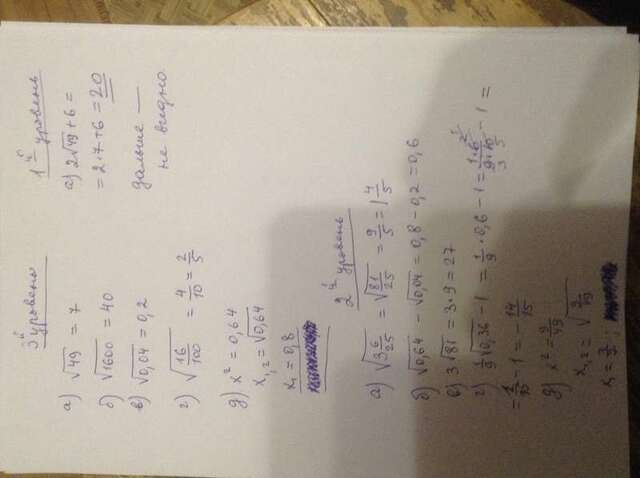 3й уровень
а) √49 = 7
б) √1600 = 40
в) √0,04 = 0,2
г) √16/100 = 4/10 = 2/5
д) x² = 0,64
x₁,₂ = √0,64
x₁ = 0,8
1й уровень
а) 2√49 + 6 =
= 2·7+6 = 20
дальше —
не видно
2й уровень
а) √3 6/25 = √81/25 = 9/5 = 1 4/5
б) √0,64 − √0,04 = 0,8 − 0,2 = 0,6
в) 3√81 = 3·9 = 27
г) 1/9 √0,36 − 1 = 1/9 · 0,6 − 1 = 1·6/9·10 − 1 =
= 1/15 − 1 = − 14/15
д) x² = 9/49
x₁,₂ = √9/49
x₁ = 3/7 ;